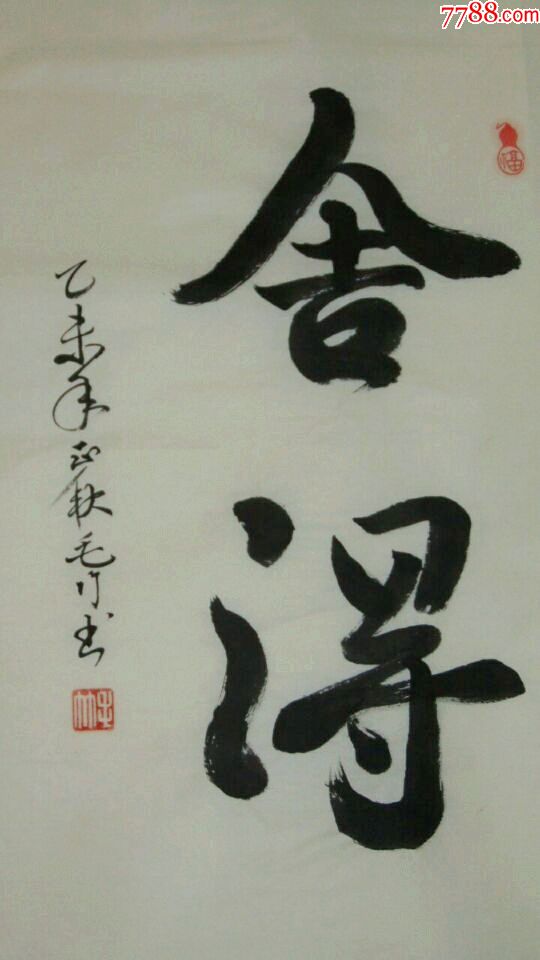 7788.com
舍
得
福
乙未年正秋毛竹书
毛竹